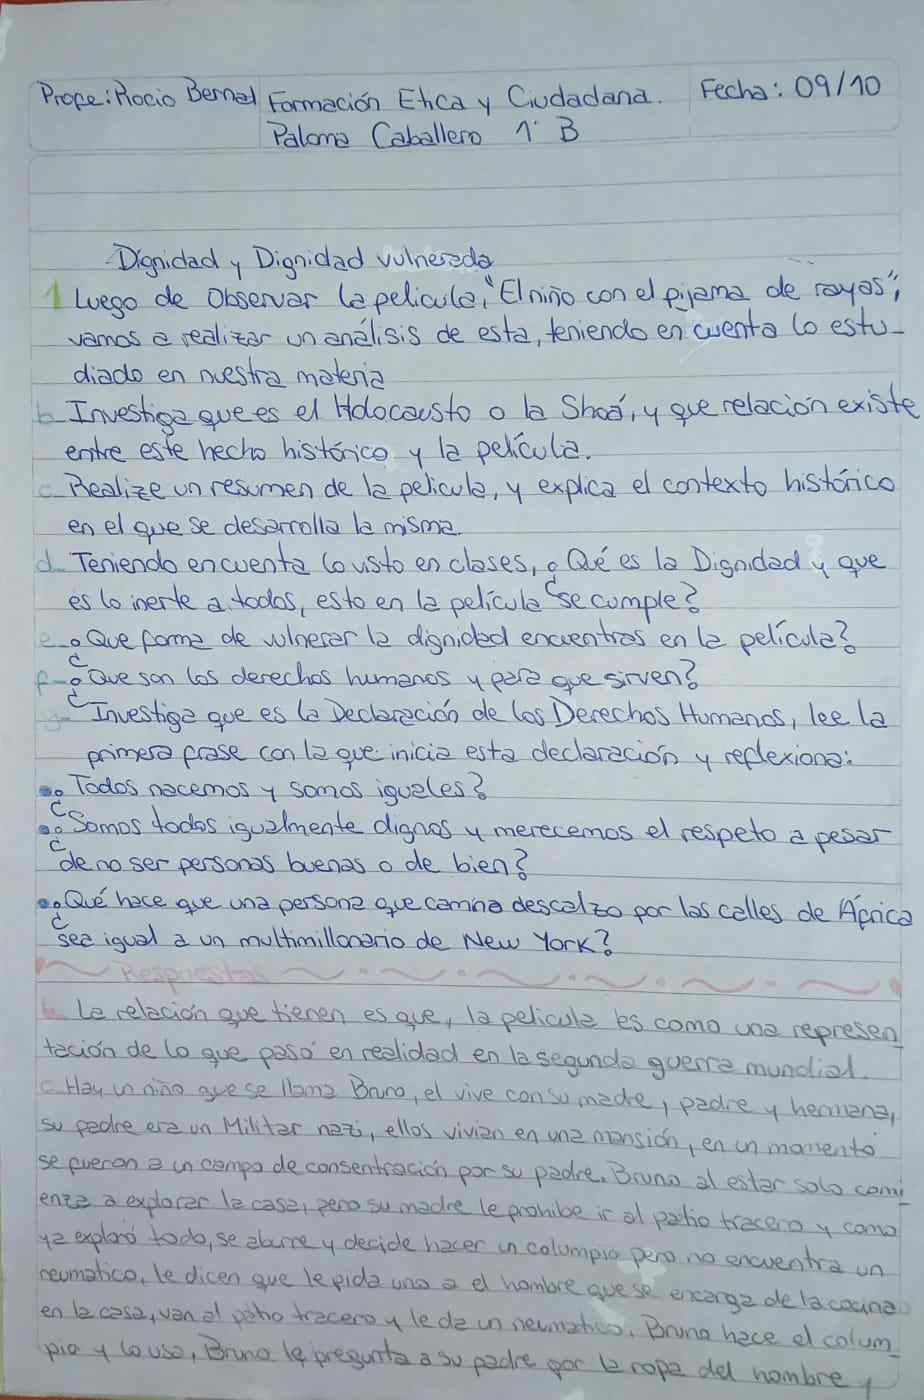 Profe: Rocio Bernal Formación Etica y Ciudadana. Fecha: 09/10
Paloma Caballero 1° B
Dignidad y Dignidad vulnerada
1 Luego de Observar la pelicula, "El niño con el pijama de rayas",
vamos a realizar un análisis de esta, teniendo en cuenta lo estu-
diado en nuestra materia
b- Investiga que es el Holocausto o la Shoá, y que relación existe
entre este hecho histórico y la película.
c- Realize un resumen de la pelicula, y explica el contexto histórico
en el que se desarrolla la misma.
d- Teniendo en cuenta lo visto en clases, ¿Qué es la Dignidad y que
es lo inerte a todos, esto en la película ¿se cumple?
e- ¿Que forma de vulnerar la dignidad encuentras en la película?
f- ¿Que son los derechos humanos y para que sirven?
g- Investiga que es la Declaración de los Derechos Humanos, lee la
primera frase con la que inicia esta declaración y reflexiona:
• ¿Todos nacemos y somos iguales?
• ¿Somos todos igualmente dignos y merecemos el respeto a pesar
de no ser personas buenas o de bien?
• ¿Qué hace que una persona que camina descalzo por las calles de África
sea igual a un multimillonario de New York?
Respuestas
b- La relación que tienen es que, la pelicula es como una represen
tación de lo que pasó en realidad en la segunda guerra mundial.
c- Hay un niño que se llama Bruno, el vive con su madre, padre y hermana,
su padre era un Militar nazi, ellos vivian en una mansión, en un momento
se fueron a un campo de consentración por su padre. Bruno al estar solo comi
enza a explorar la casa, pero su madre le prohibe ir al patio tracero y como
ya exploró todo, se aburre y decide hacer un columpio pero no encuentra un
neumatico, le dicen que le pida uno a el hombre que se encarga de la cocina
en la casa, van al patio tracero y le da un neumatico. Bruno hace el colum
pio y lo usa, Bruno le pregunta a su padre por la ropa del hombre y